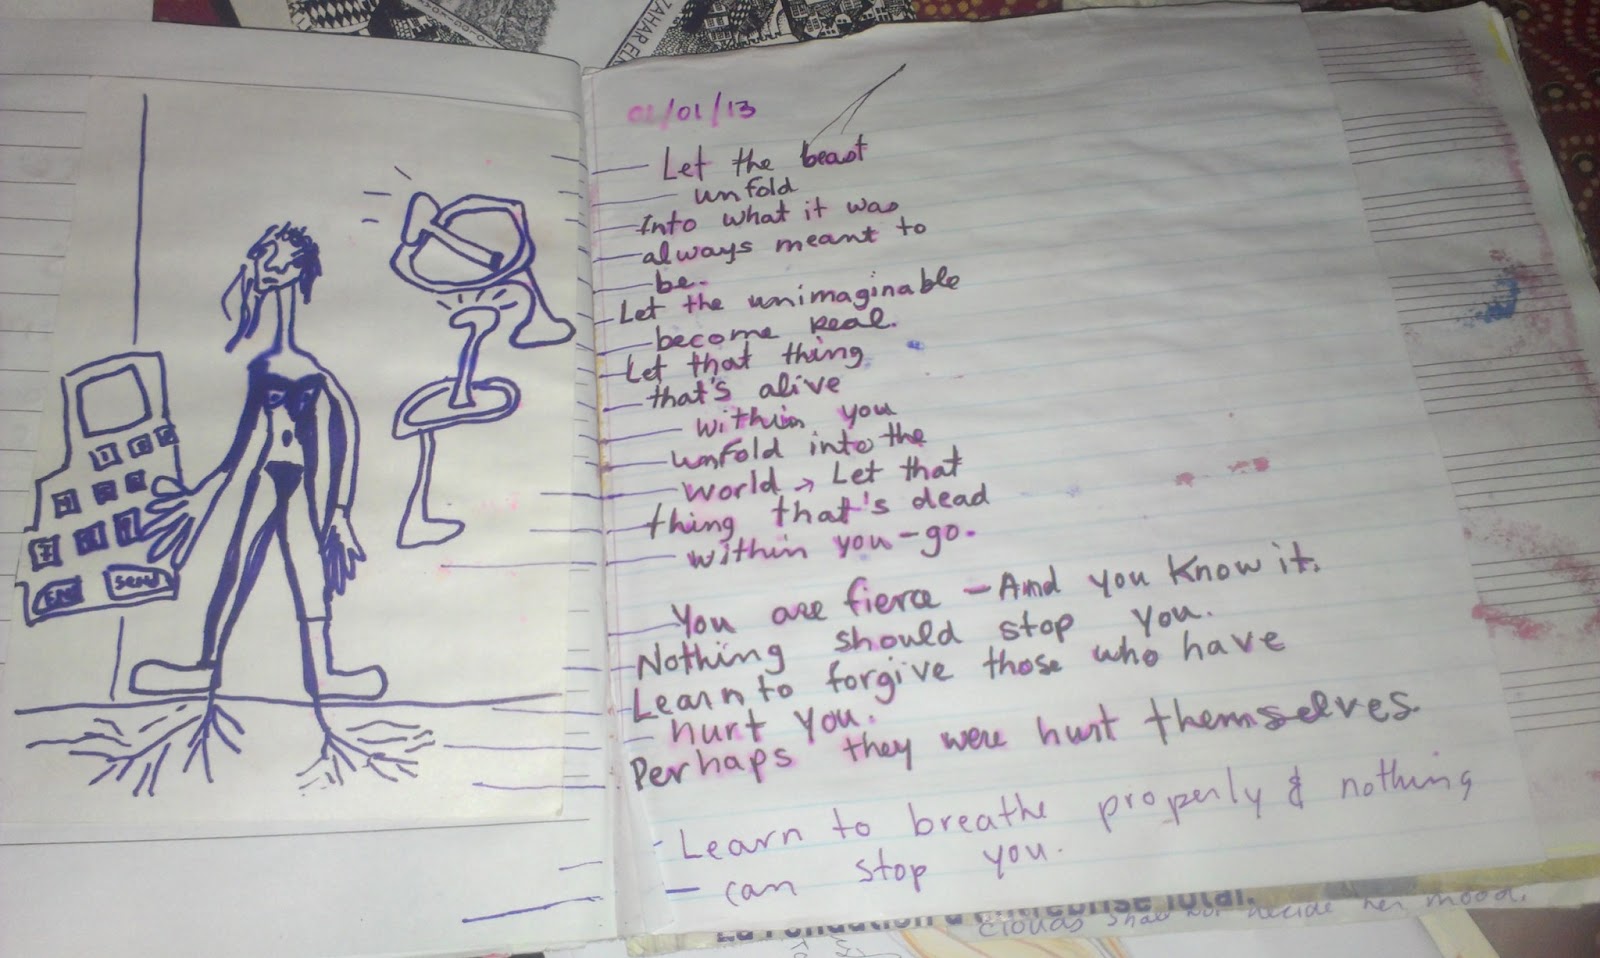 ZAHAR EL
01/01/13
Let the beast
unfold
Into what it was
always meant to
be.
Let the unimaginable
become real.
Let that thing
that's alive
within you
unfold into the
world → Let that
thing that's dead
within you - go.
You are fierce - And you know it.
Nothing should stop you.
Learn to forgive those who have
hurt you.
Perhaps they were hurt themselves.
- Learn to breathe properly & nothing
- can stop you.
send
La Fondation d'entreprise Total.
clouds shall not decide her mood.